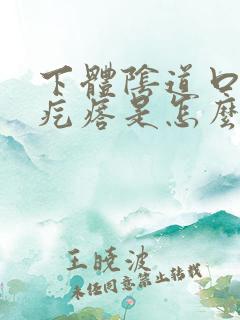 下體陰道口
疙瘩是怎麼
王曉波
未经同意禁止转载